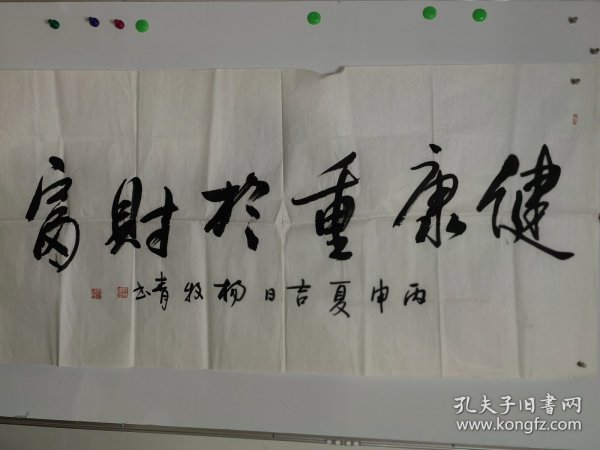 健康重於財富
丙申夏吉日杨牧青书
孔夫子旧書网
www.kongfz.com